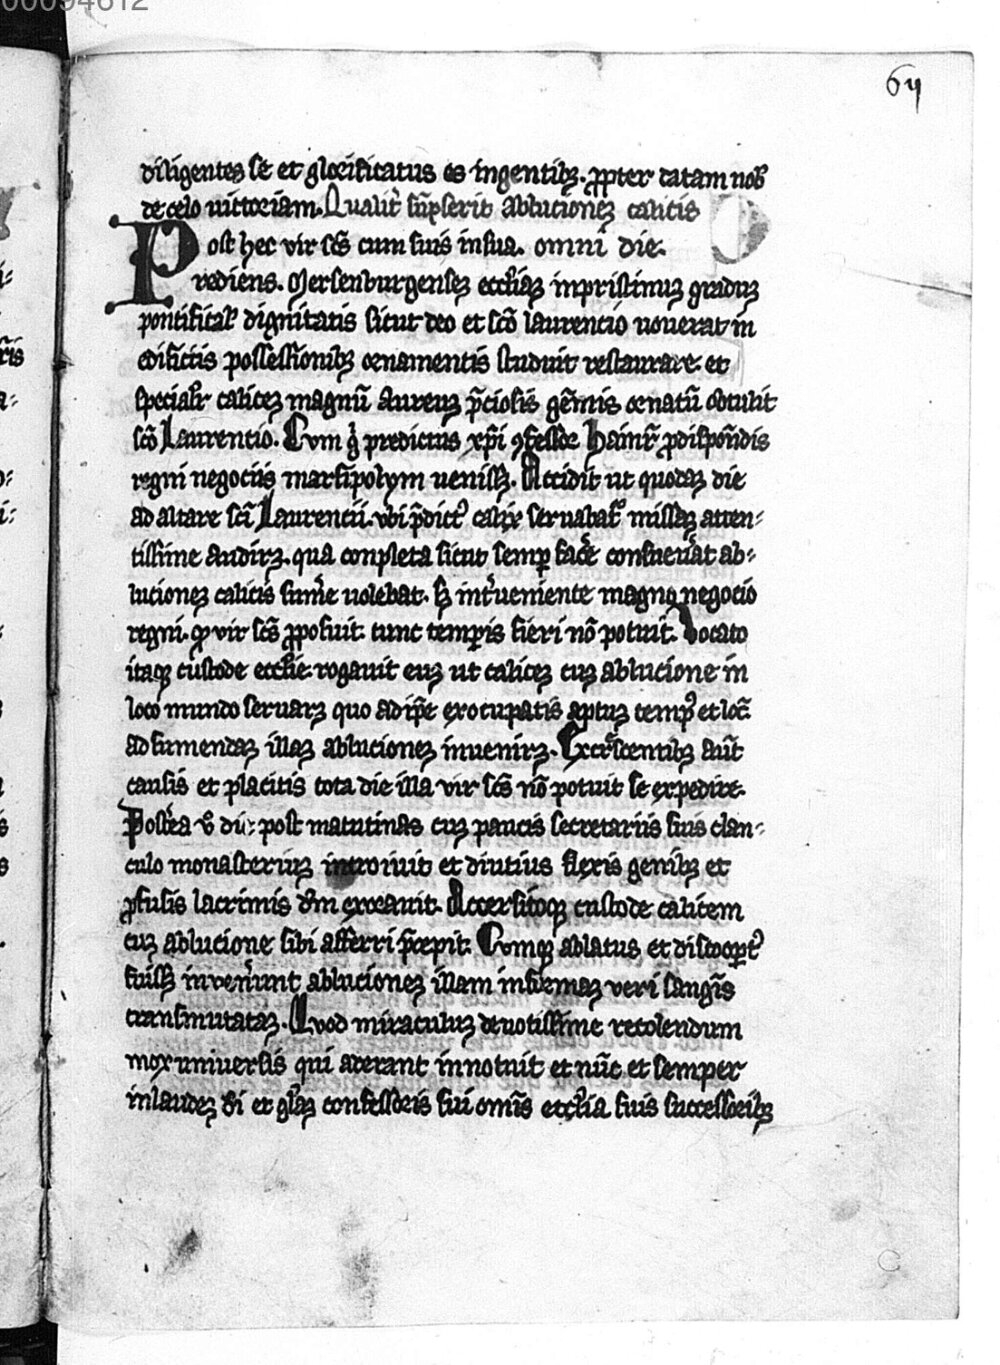 00094612
64
diligentes se et glorificatus es ingentibꝫ. ꝓpter datam nob̄
de celo uictoriam. Qualiť sūpserit ablucionēꝫ calicis
Post hec vir sc̄s cum suis insua. omni die.
rediens. Mersenburgenseꝫ eccl̄iaꝫ inpristinuꝫ graduꝫ
pontifical̓ dignitatis sicut deo et sc̄o laurencio uouerat in
edificiis possessionibꝫ ornamentis studuit restaurare. et
special̓r caliceꝫ magnū aureuꝫ p̄ciosis gēmis ornatū obtulit
sc̄o Laurentio. Cum g̊ predictus xp̄i ꝯfessor Hainr̄. ꝓdisponēdis
regni negociis marsipolym uenisꝫ. Accidit ut quodaꝫ die
ad altare sc̄i Laurencii. vbi p̄dict᾿ calix seruabat᾿ missaꝫ atten⸗
tissime audirꝫ. qua conpleta sicut semꝑ fac̄e consueu̓at ab⸗
lucioneꝫ calicis sum̄e uolebat. sꝫ int̓ueniente magno negocio
regni. ꝙ vir sc̄s ꝓposuit. tunc temꝑis fieri nō potuit. Vocato
itaqꝫ custode eccl̄ie. rogauit euꝫ ut caliceꝫ cuꝫ ablucione in
loco mundo seruarꝫ quo adip̄e exocupatis aptuꝫ temp᾿ et locū
ad sumendaꝫ illaꝫ ablucioneꝫ inuenirꝫ. Excrescentibꝫ aūt
causis et placitis tota die illa vir sc̄s nō potuit se expedire.
Postea v̓ die post matutinas cuꝫ paucis secretariis suis clan⸗
culo monasteriuꝫ introiuit et diutius flexis genibꝫ et
ꝓfusis lacrimis dn̄m exorauit. Accersitoqꝫ custode calicem
cuꝫ ablucione sibi afferri p̄cepit. Cumqꝫ ablatus et discooꝑt᾿
fuisꝫ inuen̓unt ablucioneꝫ illam inform̄aꝫ veri sangīs
transmutataꝫ. Quod miraculuꝫ deuotissime recolendum
mox uniuersis qui aderant innotuit et nūc et semper
inlaudeꝫ d̄i et gl̄aꝫ confessoris sui omīs eccl̄ia suis successoribꝫ